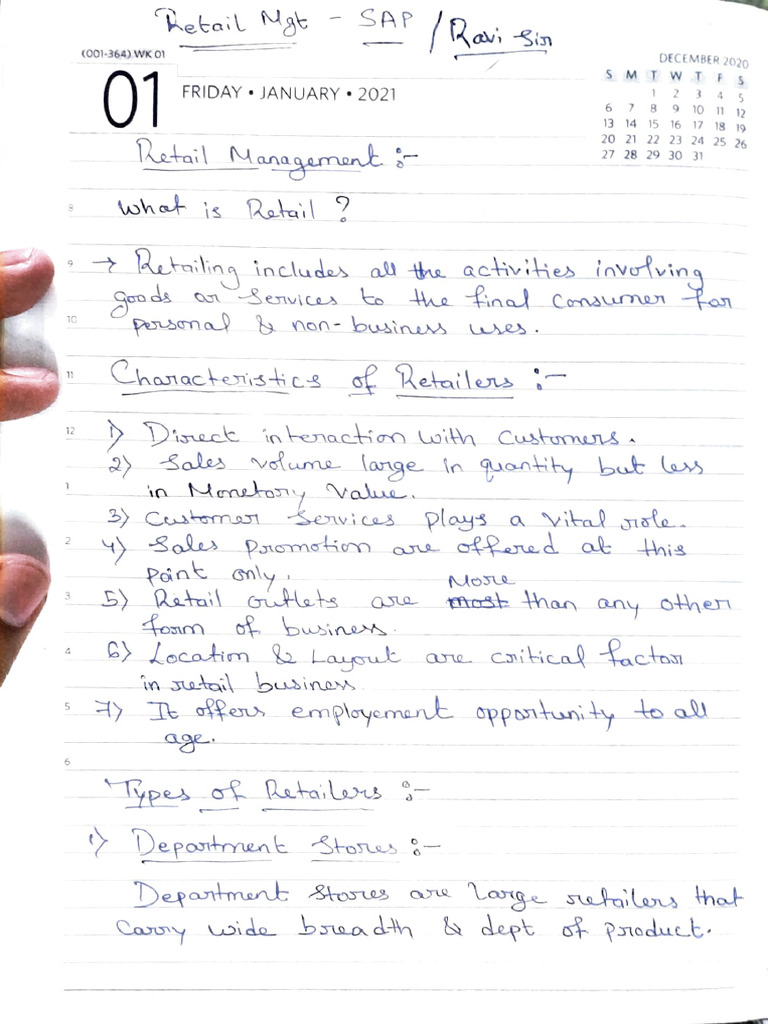 Retail Mgt - SAP / Ravi Sir
(001-364) WK 01
DECEMBER 2020
01 FRIDAY • JANUARY • 2021
S M T W T F S
1 2 3 4 5
6 7 8 9 10 11 12
13 14 15 16 17 18 19
20 21 22 23 24 25 26
27 28 29 30 31
Retail Management :-
8 What is Retail ?
9 → Retailing includes all the activities involving
goods or services to the final consumer for
10 personal & non-business uses.
11 Characteristics of Retailers :-
12 1) Direct interaction with customers.
2) Sales volume large in quantity but less
1 in Monetory Value.
3) Customer Services plays a vital role.
2 4) Sales promotion are offered at this
point only.
More
3 5) Retail outlets are most than any other
form of business.
4 6) Location & Layout are critical factor
in retail business.
5 7) It offers employement opportunity to all
age.
6
Types of Retailers :-
1) Department Stores :-
Department stores are large retailers that
carry wide breadth & dept of product.